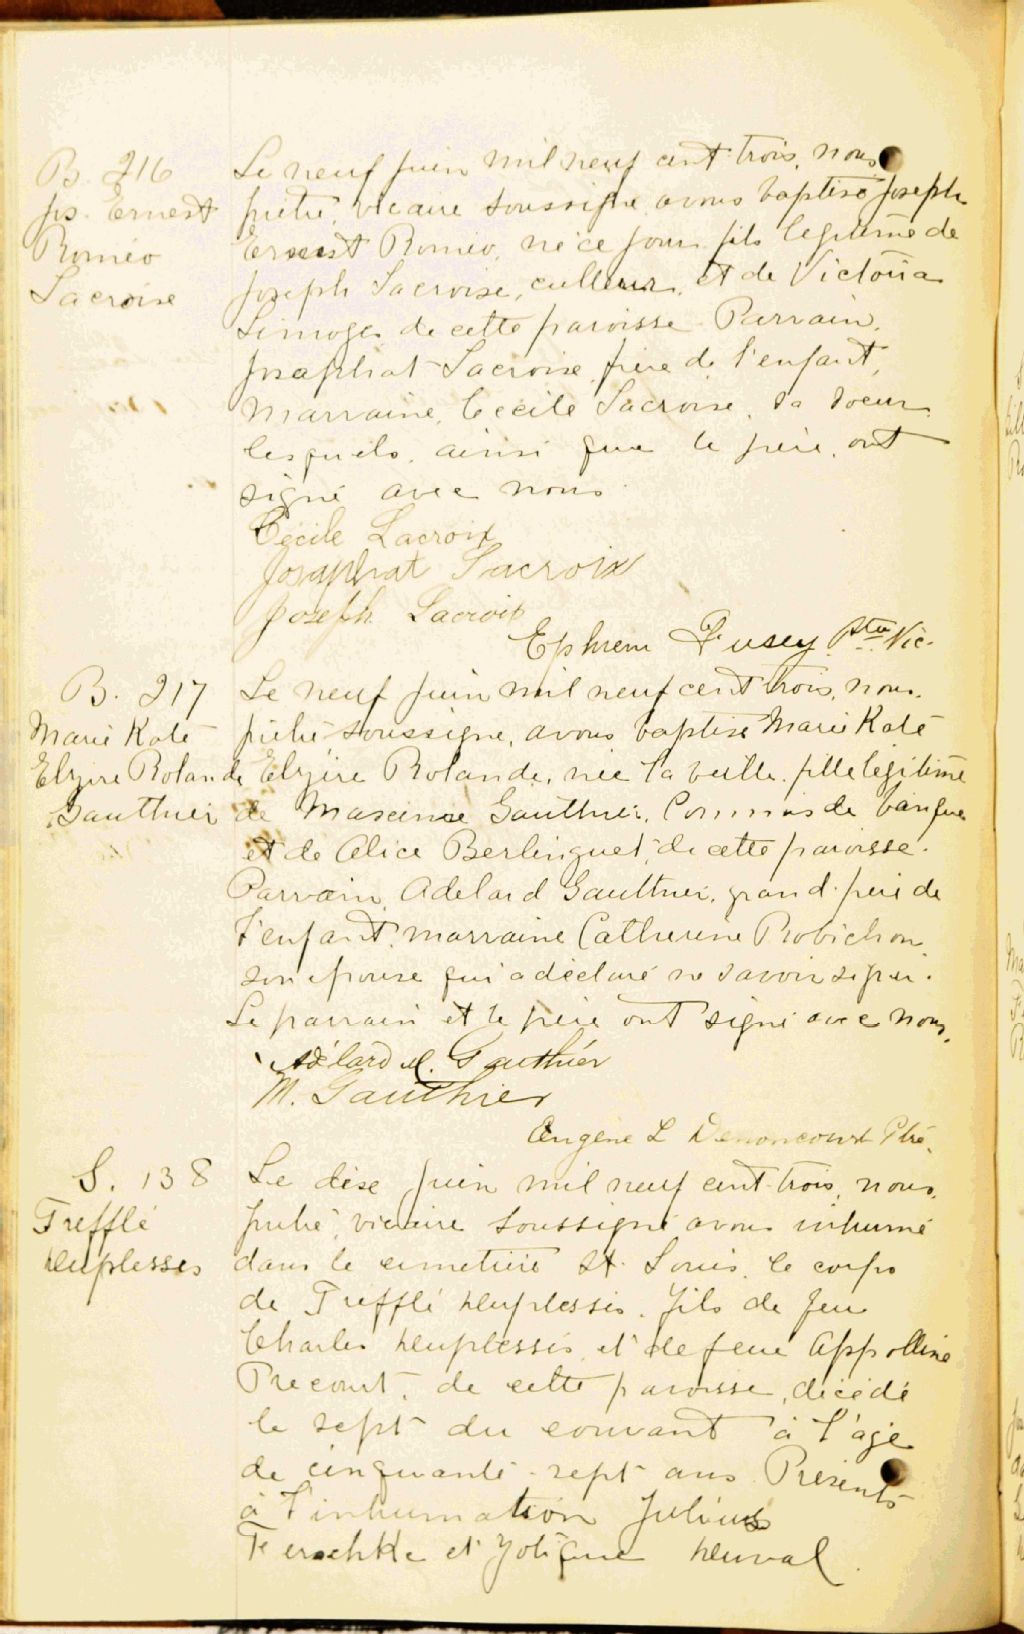 B. 216
Js. Ernest
Roméo
Lacroix
Le neuf juin mil neuf cent trois, nous
prêtre, vicaire soussigné avons baptisé Joseph
Ernest Roméo, né ce jour fils légitime de
Joseph Lacroix, culleur, et de Victoria
Limoges de cette paroisse. Parrain,
Josaphat Lacroix frère de l'enfant,
Marraine, Cécile Lacroix, sa soeur
lesquels, ainsi que le père, ont
signé avec nous.
Cécile Lacroix
Josaphat Lacroix
Joseph Lacroix
Ephrem Ptre Vic.
B. 217
Marie Kate
Elzire Rolande
Gauthier
Le neuf juin mil neuf cent trois, nous.
prêtre soussigné, avons baptisé Marie Kate
Elzire Rolande, née la veille, fille légitime
de Gauthier, Commis de banque
et de Alice Berlinguet, de cette paroisse.
Parrain, Adelard Gauthier, grand-père de
l'enfant, marraine Catherine Robichon
son épouse qui a déclaré ne savoir signer.
Le parrain et le père ont signé avec nous.
Adélard Gauthier
M. Gauthier
Eugène L Denoncourt Ptre.
S. 138
Trefflé
Duplesses
Le dixe juin mil neuf cent trois, nous,
prêtre, vicaire soussigné avons inhumé
dans le cimetière St. Louis, le corps
de Trefflé Duplessis, fils de feu
Charles Duplessis et de feue Appolline
Precourt, de cette paroisse, décédé
le sept du courant à l'âge
de cinquante-sept ans. Présents
à l'inhumation Julius
et Duval.